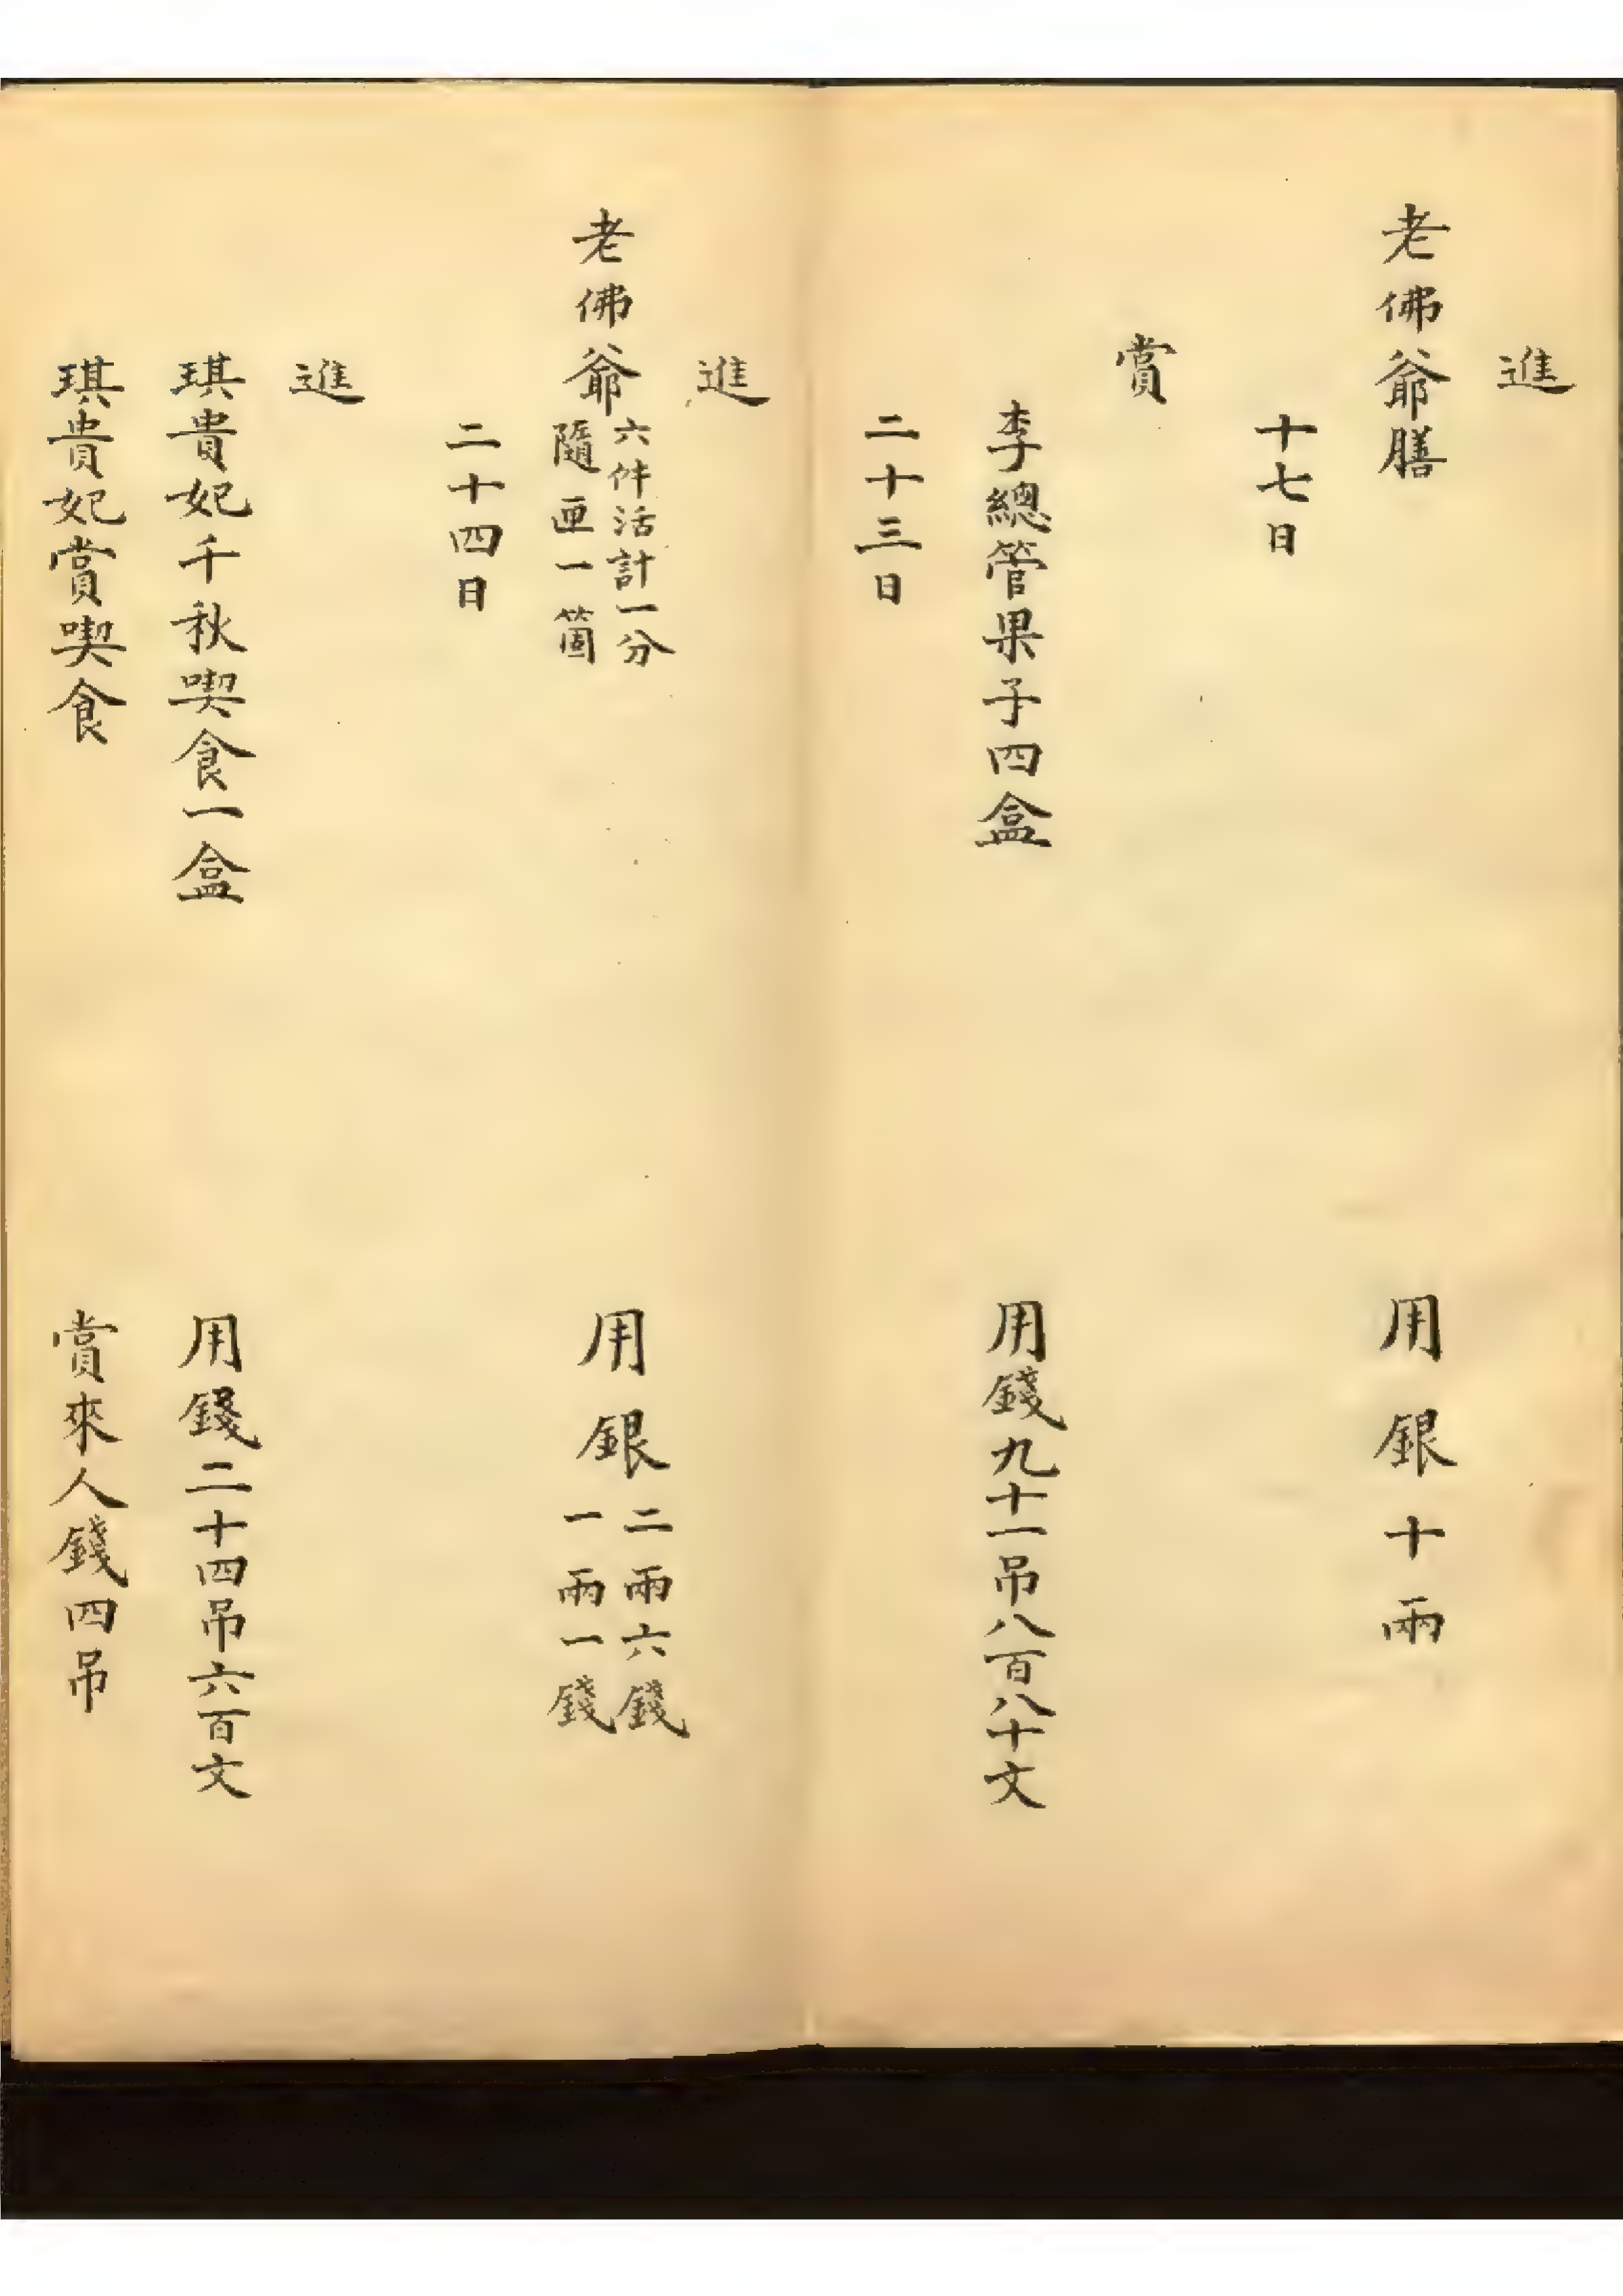 進
老佛爺膳 用銀十兩
十七日
賞
李總管果子四盒 用錢九十一吊八百八十文
二十三日
進
老佛爺 六件活計一分 用銀 二兩六錢
隨匣一箇 一兩一錢
二十四日
進
琪貴妃千秋喫食一盒 用錢二十四吊六百文
琪貴妃賞喫食 賞來人錢四吊